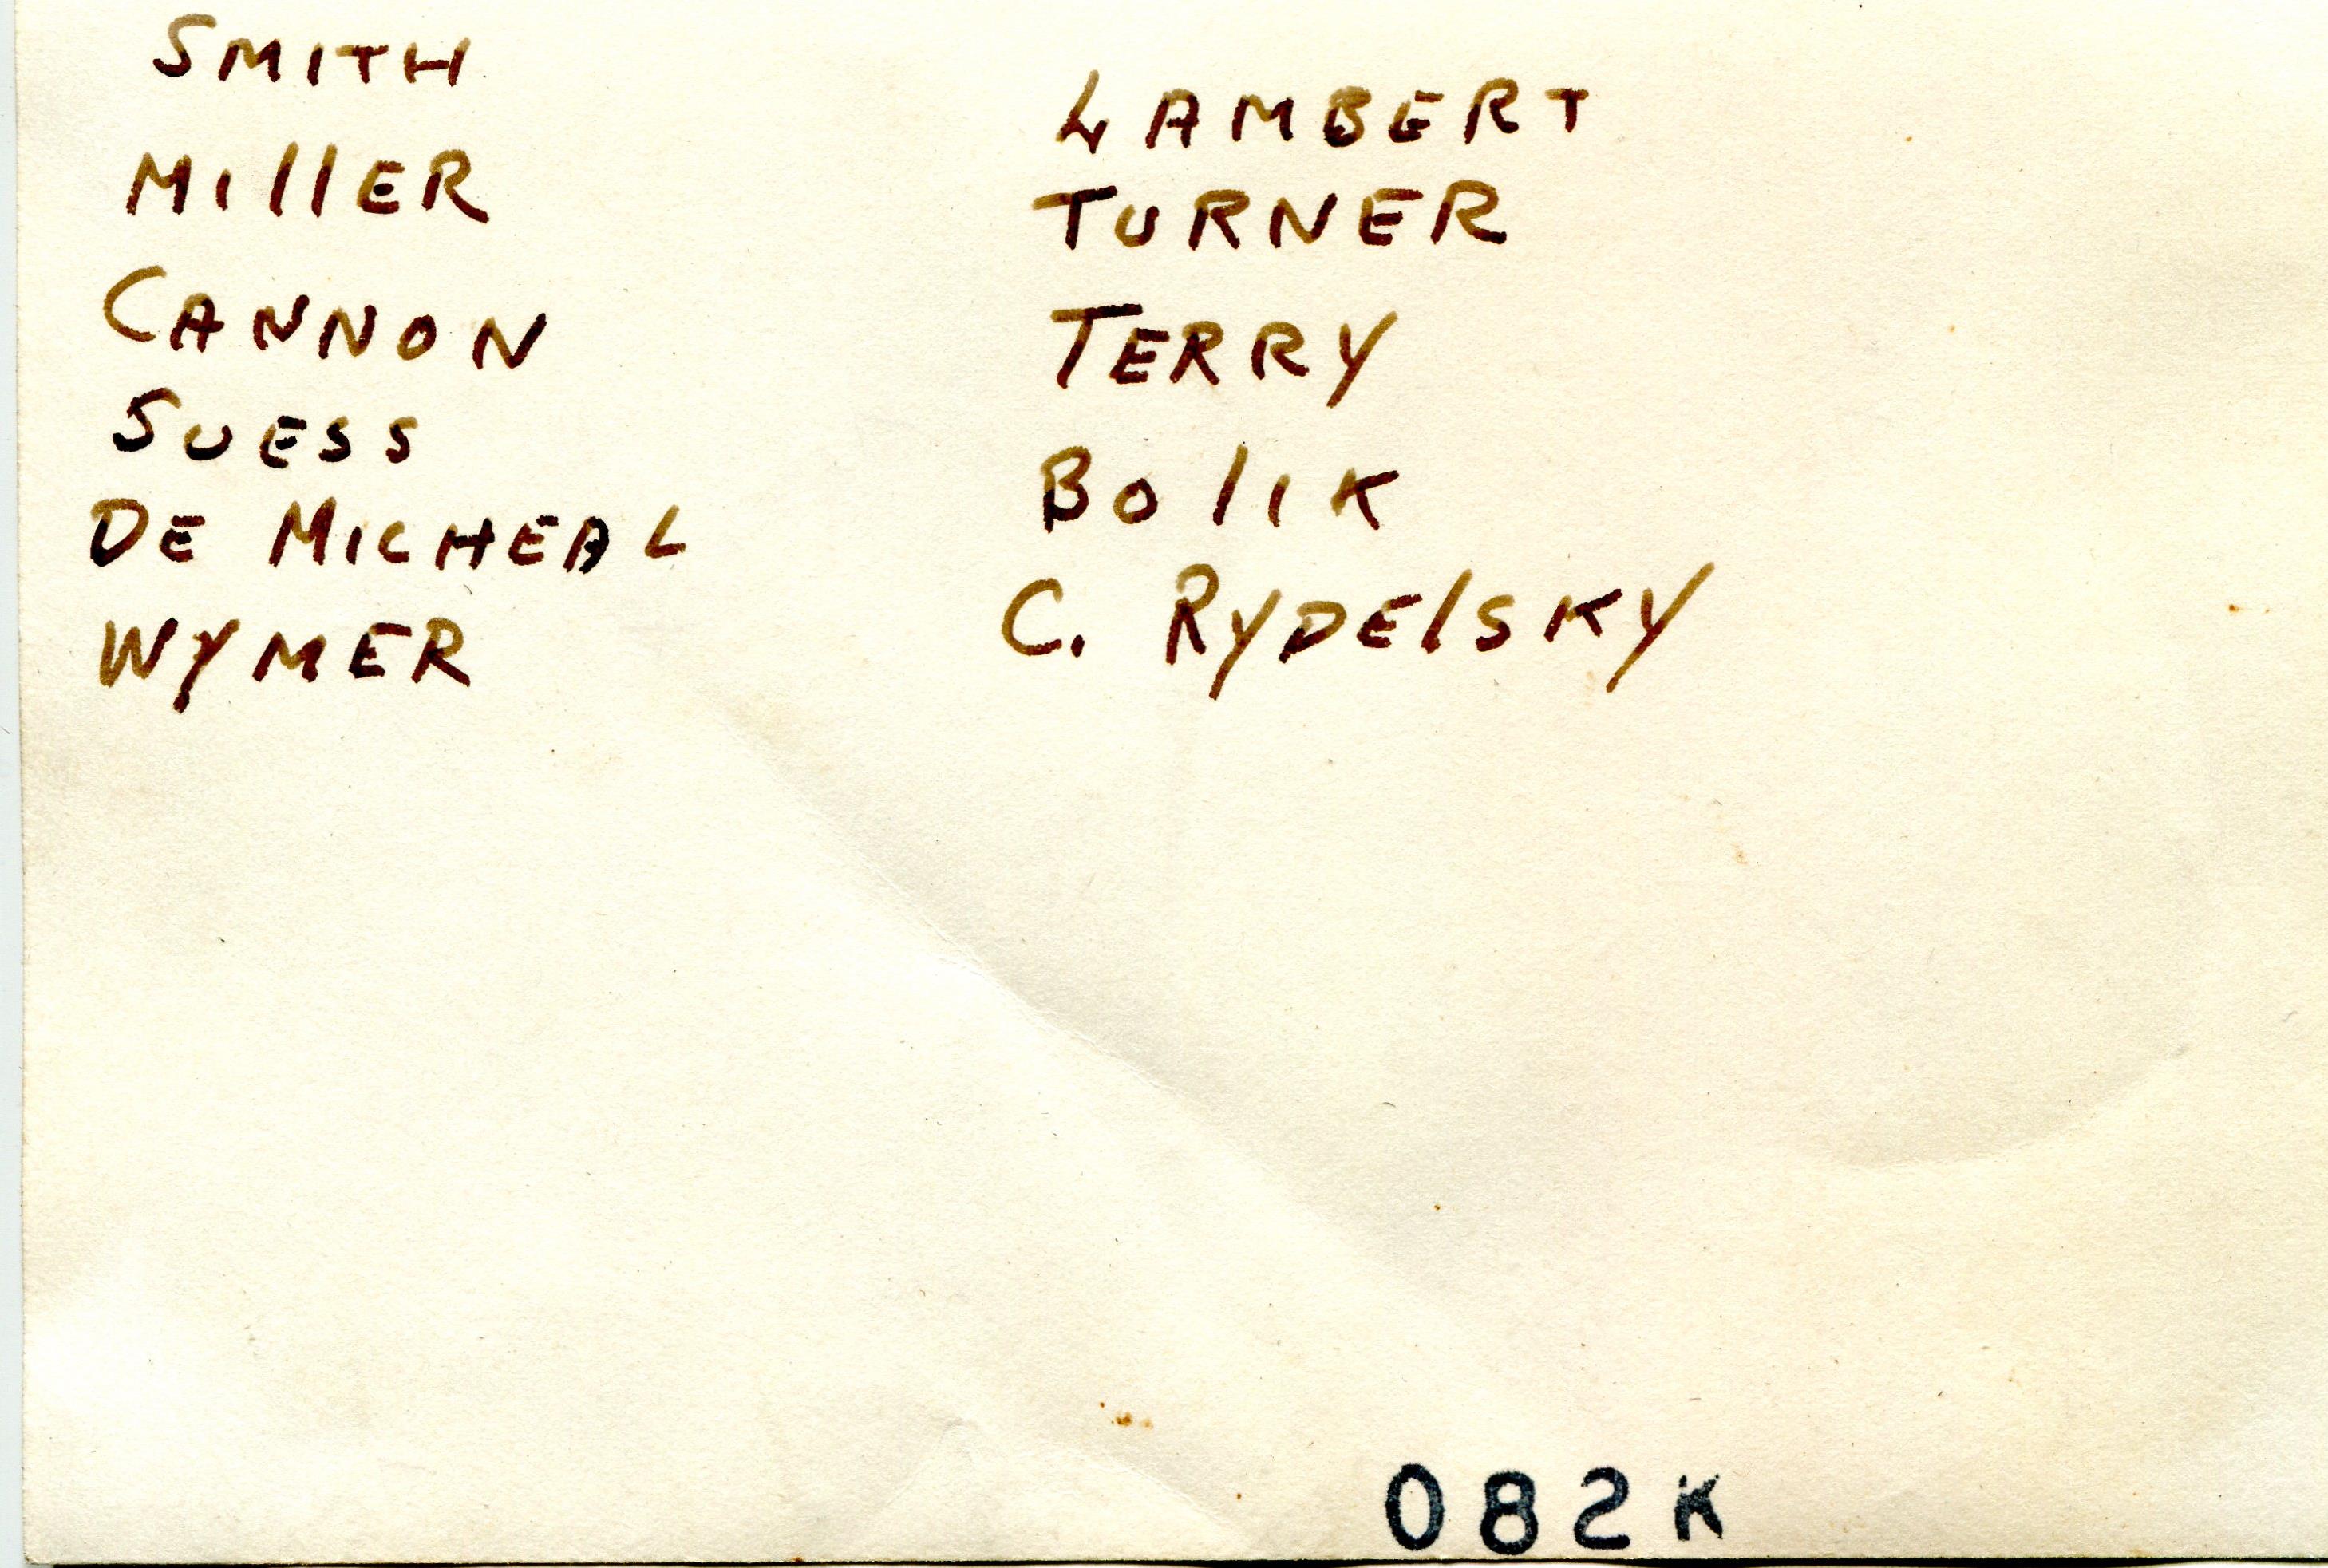 SMITH
MIllER
CANNON
SUESS
DE MICHEAL
WYMER
LAMBERT
TURNER
TERRY
BOlIK
C. RYDElSKY
082K